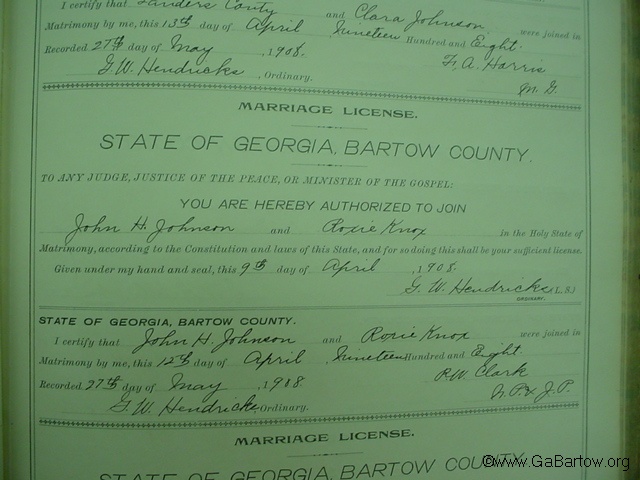 I certify that Sanders Conty and Clara Johnson, were joined in
Matrimony by me, this 13th day of April Nineteen Hundred and Eight.
Recorded 27th day of May, 1908. F. A. Harris
G. W. Hendricks, Ordinary. M. G
MARRIAGE LICENSE.
STATE OF GEORGIA, BARTOW COUNTY.
TO ANY JUDGE, JUSTICE OF THE PEACE, OR MINISTER OF THE GOSPEL:
YOU ARE HEREBY AUTHORIZED TO JOIN
John H. Johnson and Roxie Knox in the Holy State of
Matrimony, according to the Constitution and laws of this State, and for so doing this shall be your sufficient license.
Given under my hand and seal, this 9th day of April, 1908.
G. W. Hendricks (L. S.)
ORDINARY.
STATE OF GEORGIA, BARTOW COUNTY.
I certify that John H. Johnson and Roxie Knox were joined in
Matrimony by me, this 12th day of April, Nineteen Hundred and Eight.
Recorded 27th day of May, 1908 R.W. Clark
G. W. Hendricks Ordinary. N. P. & J. P.
MARRIAGE LICENSE.
STATE OF GEORGIA, BARTOW COUNTY.
©www.GaBartow.org